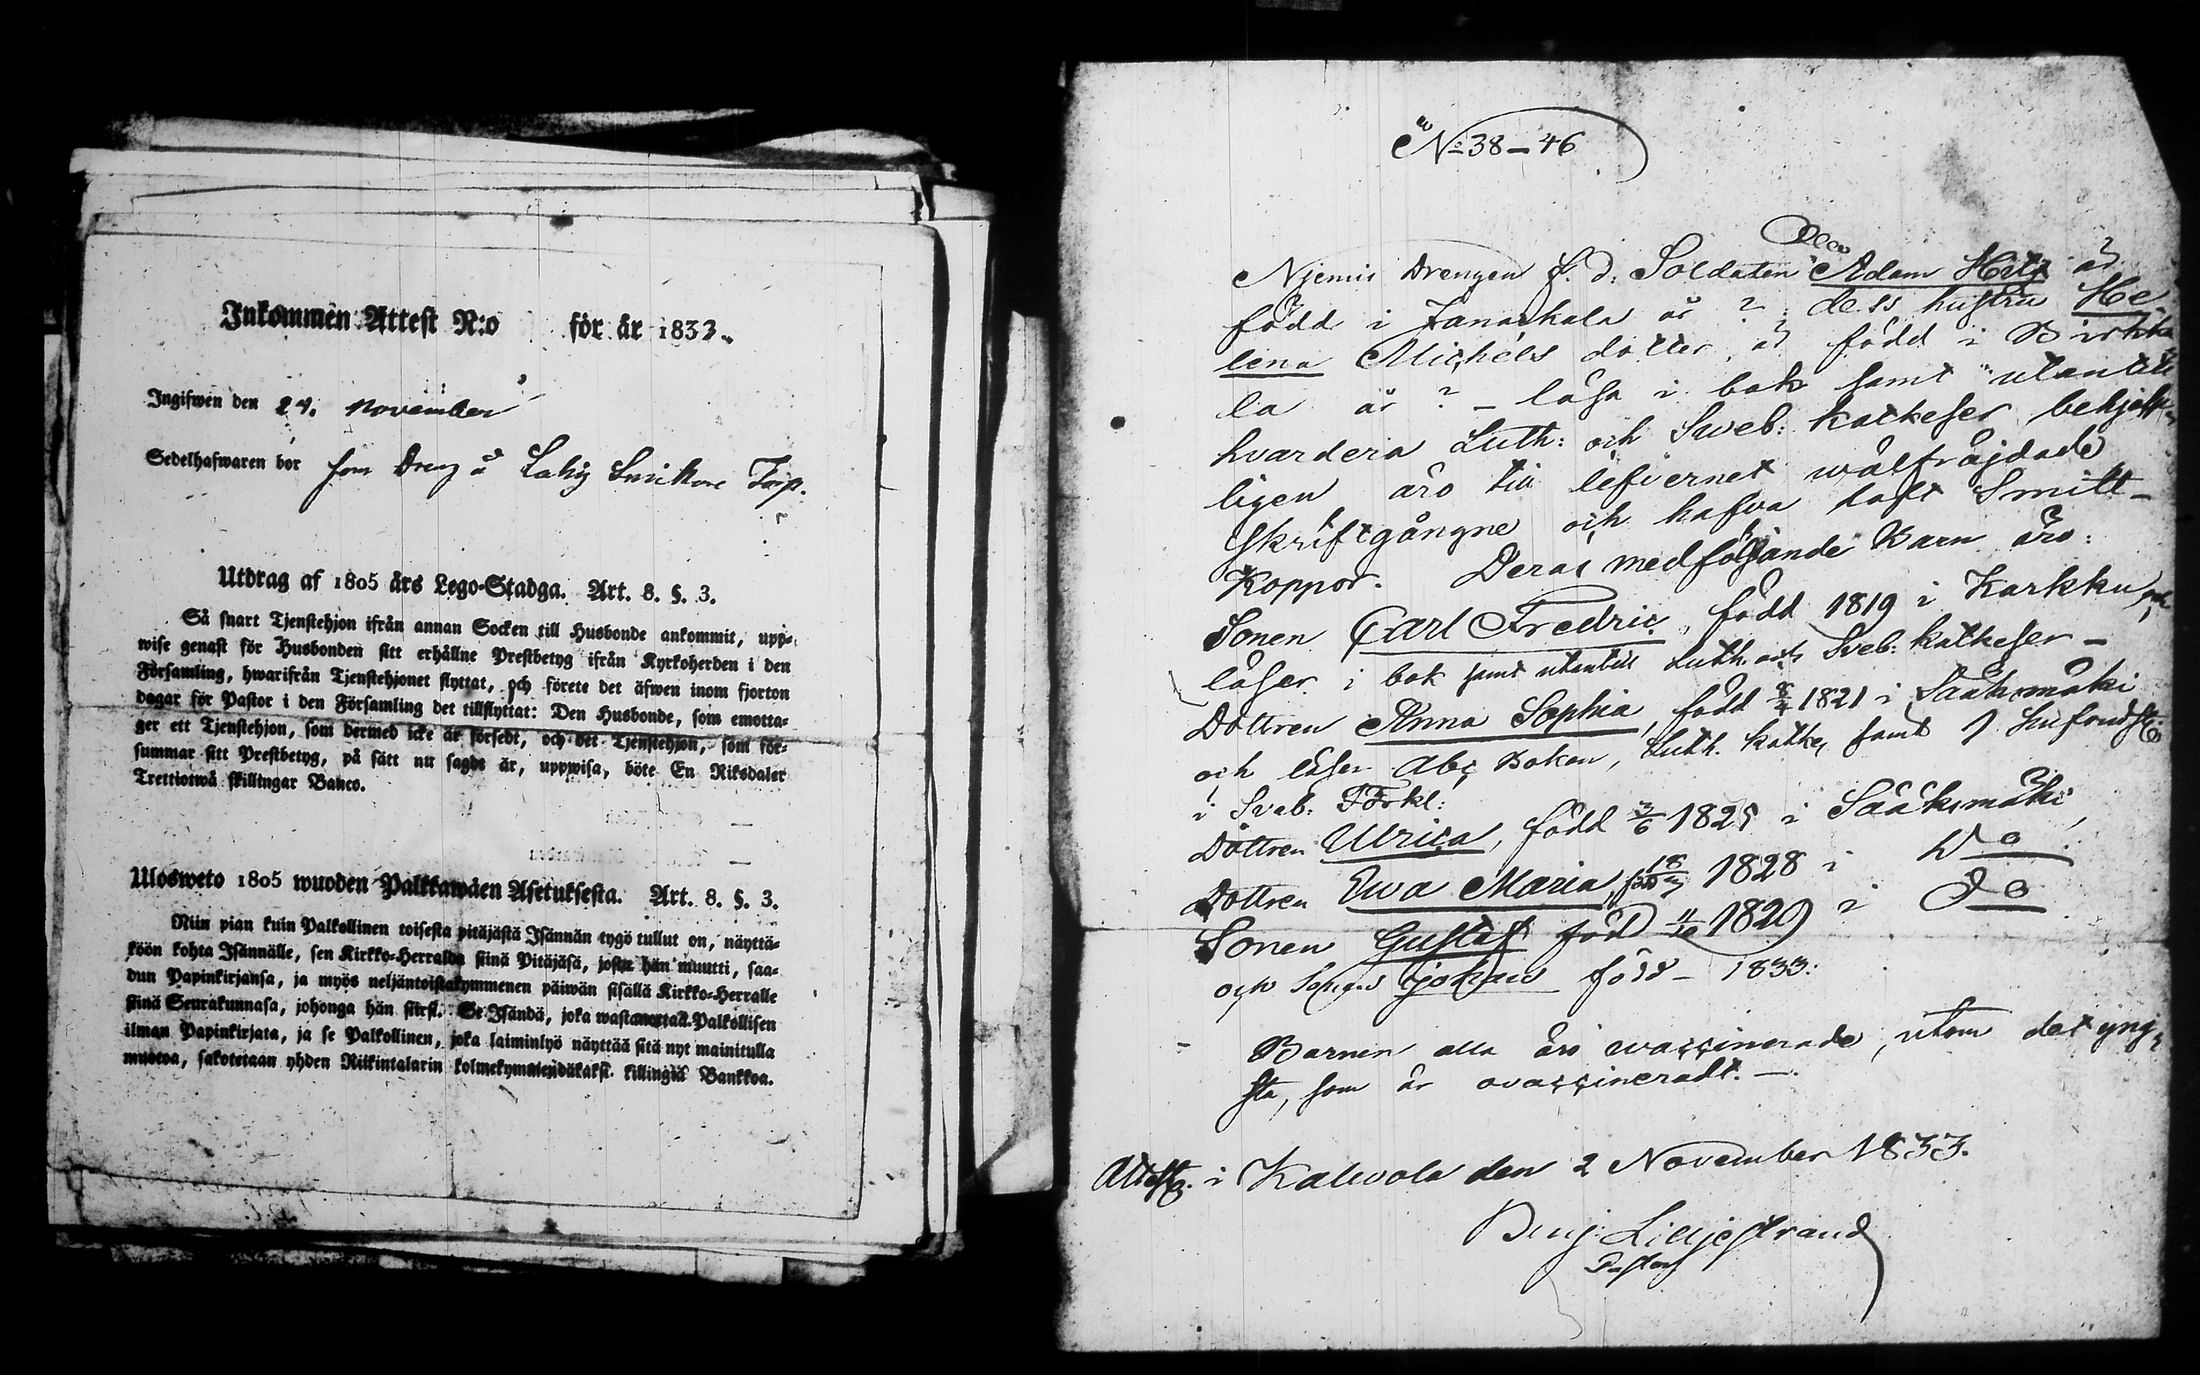 Inkommen Attest N:o för år 1833.
Ingifwen den 24. November
Sedelhafwaren bor som Dreng å Lahis Torp.
Utdrag af 1805 års Lego-Stadga. Art. 8. §. 3.
Så snart Tjenstehjon ifrån annan Socken till Husbonde ankommit, upp-
wise genast för Husbonden sitt erhållne Prestbetyg ifrån Kyrkoherden i den
Församling, hwarifrån Tjenstehjonet flyttat, och förete det äfwen inom fjorton
dagar för Pastor i den Församling det tillflyttat: Den Husbonde, som emotta-
ger ett Tjenstehjon, som dermed icke är försedt, och det Tjenstehjon, som för-
summar sitt Prestbetyg, på sätt nu sagdt är, uppwisa, böte En Riksdaler
Trettiotwå skillingar Banco.
Ulosweto 1805 wuoden Palkkawäen Asetuksesta. Art. 8. §. 3.
Niin pian kuin Palkollinen toisesta pitäjästä Isännän tygö tullut on, näyttä-
köön kohta Isännälle, sen Kirkko-Herralda siinä Pitäjäsä, josta hän muutti, saa-
dun Papinkirjansa, ja myös neljäntoistakymmenen päiwän sisällä Kirkko-Herralle
siinä Seurakunnasa, johonga hän siirsi. Se Isändä, joka wastanottaa Palkollisen
ilman Papinkirjata, ja se Palkollinen, joka laiminlyö näyttää sitä nyt mainitulla
muotoa, sakotetaan yhden Riikintalarin kolmekymmendäkaksi killingiä Bankkoa.
No 38-46
Drengen f. d. Soldaten Adam är
född i Janackala år ? dess hustru He
lena Michels dotter är född i Birkka
la år ? - läsa i bok samt utantill
hvardera Luth: och Sweb: katkeser behjelp-
ligen äro till lefvernet wälfräjdade
skriftgångne och hafva haft Smitt-
Koppor. Deras medföljande Barn äro:
Sonen Carl Fredric, född 1819 i Karkku,
läser i bok samt utantill Luth. och Sveb: katkeser -
Dottren Anna Sophia, född 8/4 1821 i Sääksmäki
och läser Abc Boken, Luth. katke, samt
i Sveb: Förkl:
Dottren Ulrica, född 3/6 1825 i Sääksmäki,
Dottren Ewa Maria, född 18/3 1828 i Do
Sonen Gustaf född 4/10 1829 i Do
och Sonen Johan född - 1833:
Barnen alla äro waccinerade, utom det yng-
sta, som är ovaccineradt. -
Attest. i Kalvola den 2 November 1833.
Benj. Lilljestrand
Pastor